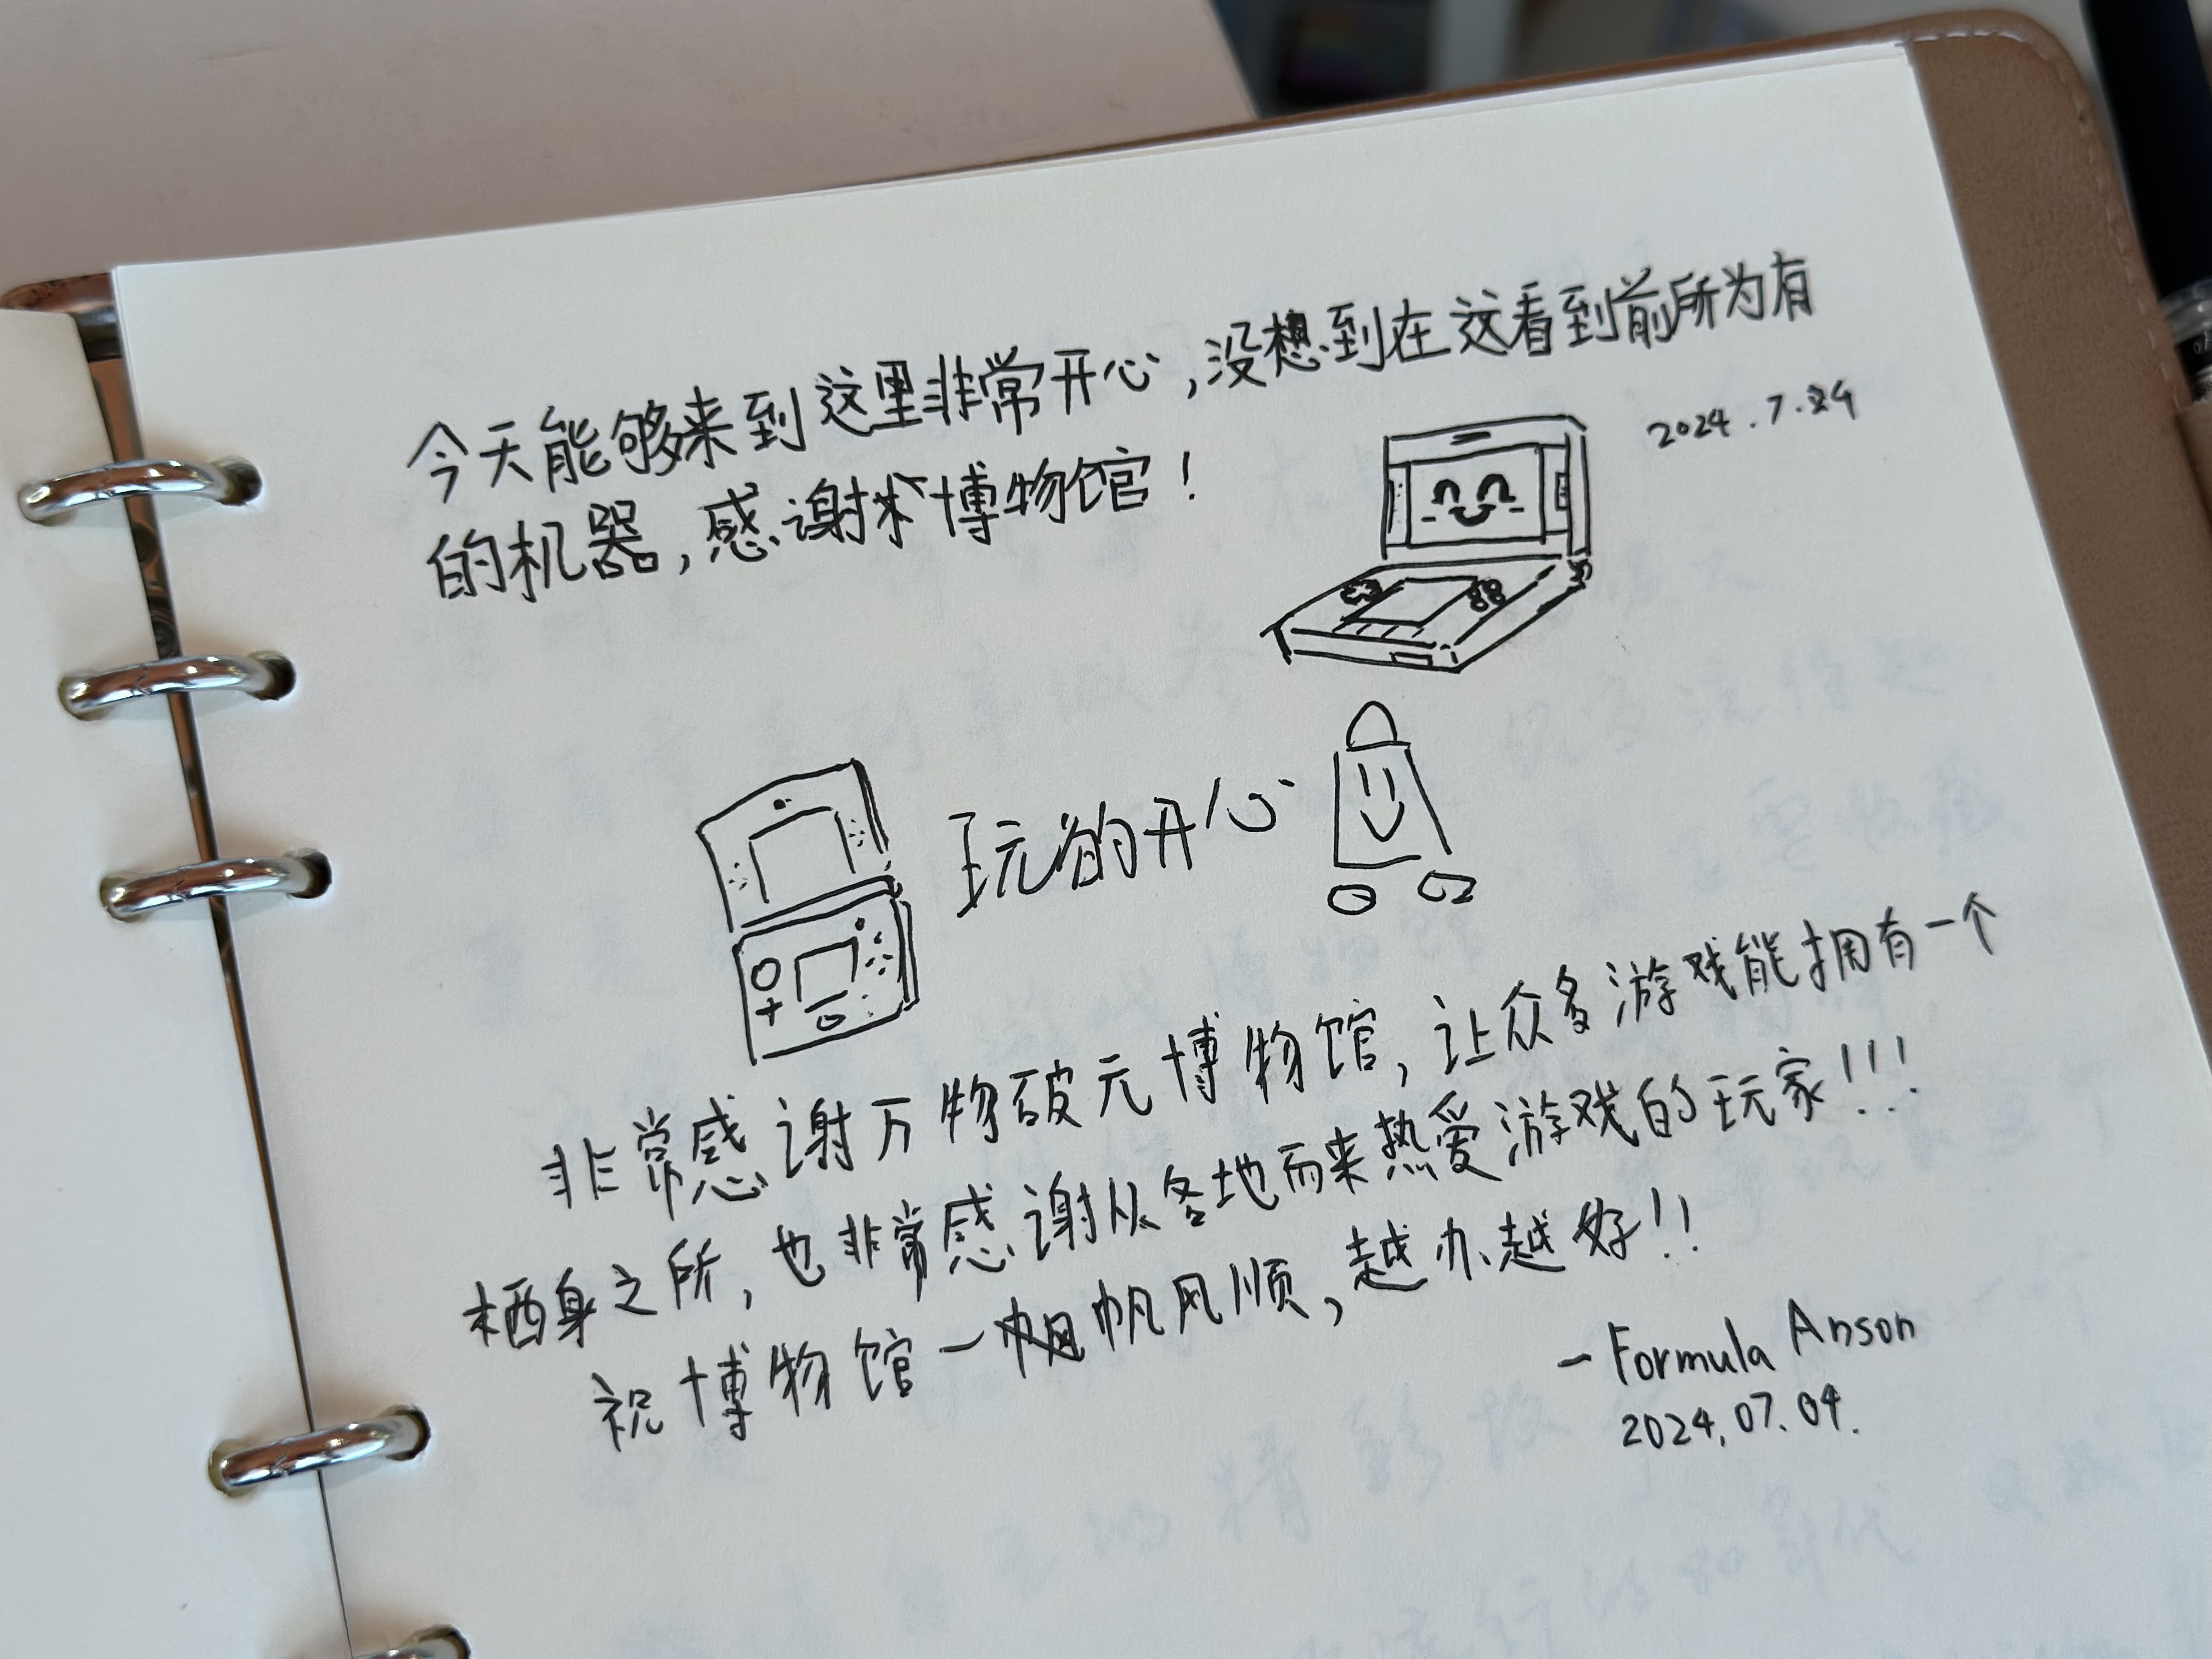 今天能够来到这里非常开心,没想到在这看到前所为有
的机器,感谢 博物馆!
2024.7.
玩的开心
非常感谢万物破元博物馆,让众多游戏能拥有一个
栖身之所,也非常感谢从各地而来热爱游戏的玩家!!!
祝博物馆一帆风顺,越办越好!!
- Formula Anson
2024.07.04.